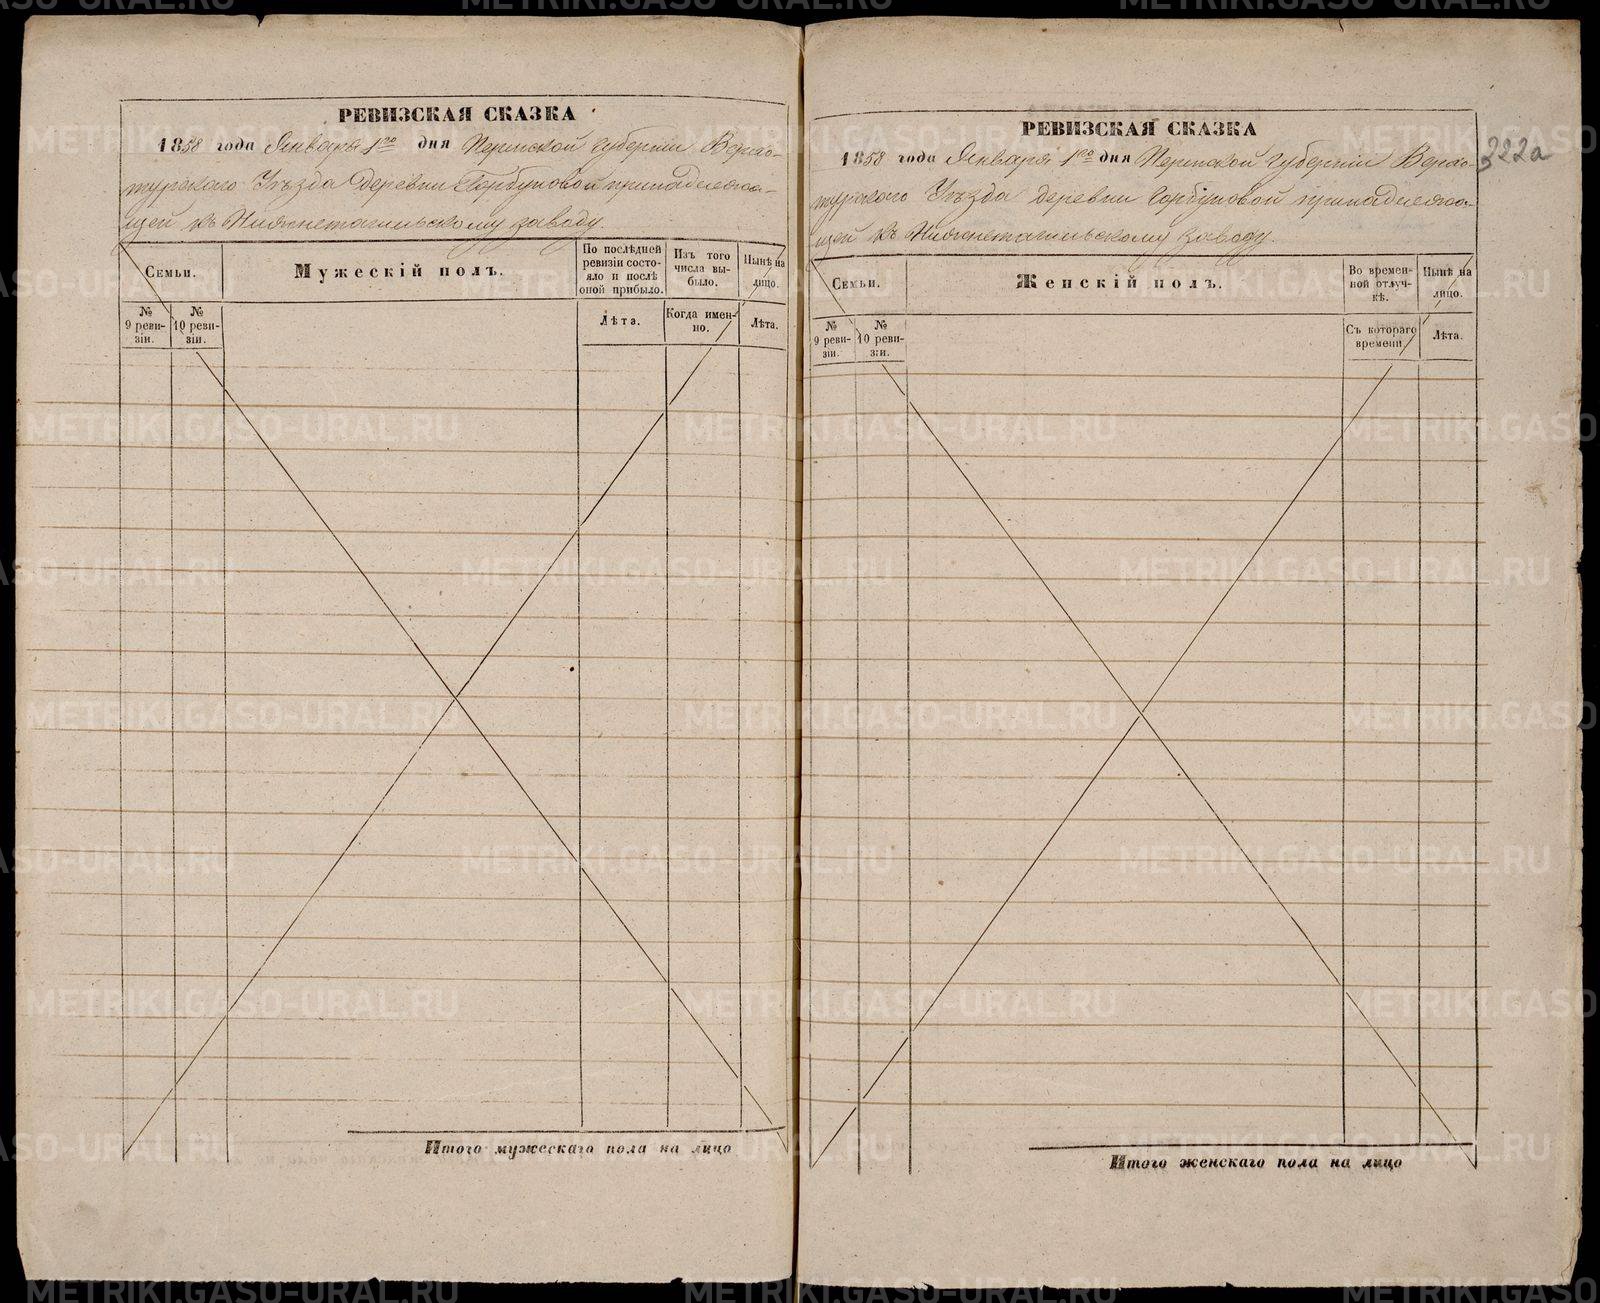 РЕВИЗСКАЯ СКАЗКА
1858 года Января 1го дня Пермской губернiи Верхо-
турскаго Уѣзда деревни Горбуновой принадлежа-
щей къ Нижнетагильскому заводу.
Семьи.
Мужескiй полъ.
По послѣдней
ревизiи состо-
яло и послѣ
оной прибыло.
Изъ того
числа вы-
было.
Нынѣ на
лицо.
№
9 реви-
зiи.
№
10 реви-
зiи.
Лѣта.
Когда имен-
но.
Лѣта.
Итого мужескаго пола на лицо
322а
РЕВИЗСКАЯ СКАЗКА
1858 года Января 1го дня Пермской губернiи Верхо-
турскаго Уѣзда деревни Горбуновой принадлежа-
щей къ Нижнетагильскому заводу.
Семьи.
Женскiй полъ.
Во времен-
ной отлуч-
кѣ.
Нынѣ на
лицо.
№
9 реви-
зiи.
№
10 реви-
зiи.
Съ котораго
времени.
Лѣта.
Итого женскаго пола на лицо
METRIKI.GASO-URAL.RU